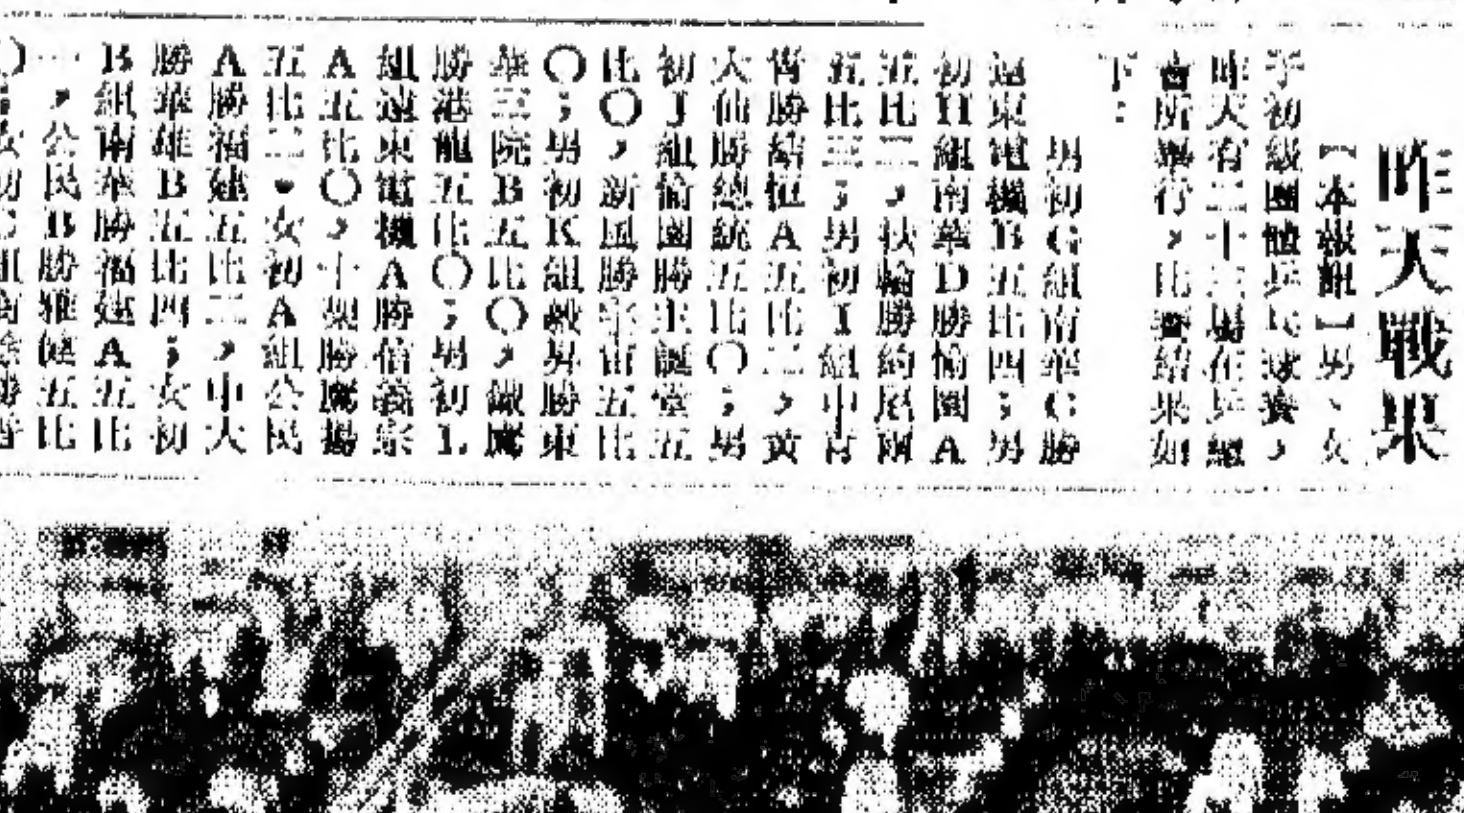 昨天戰果
【本報訊】男、女
子初級團體乒乓球賽,
昨天有二十三場在乒總
會所舉行,比賽結果如
下:
男初G組南華C勝
遠東電機B五比四;男
初H組南華D勝愉園A
五比二,秋輪勝約尼兩
五比三;男初I組中青
勝結恒A五比二,黃
大仙勝總統五比〇;男
初J組愉園勝主誕堂五
比〇,新風勝宇宙五比
〇;男初K組毅昇勝東
華三院B五比〇,鐵鷹
勝港龍五比〇;男初L
組遠東電機A勝信義宗
A五比〇,十架勝鷹揚
五比二。女初A組公民
A勝福建五比二,中大
勝華雄B五比四;女初
B組南華勝福建A五比
一,公民B勝雅健五比